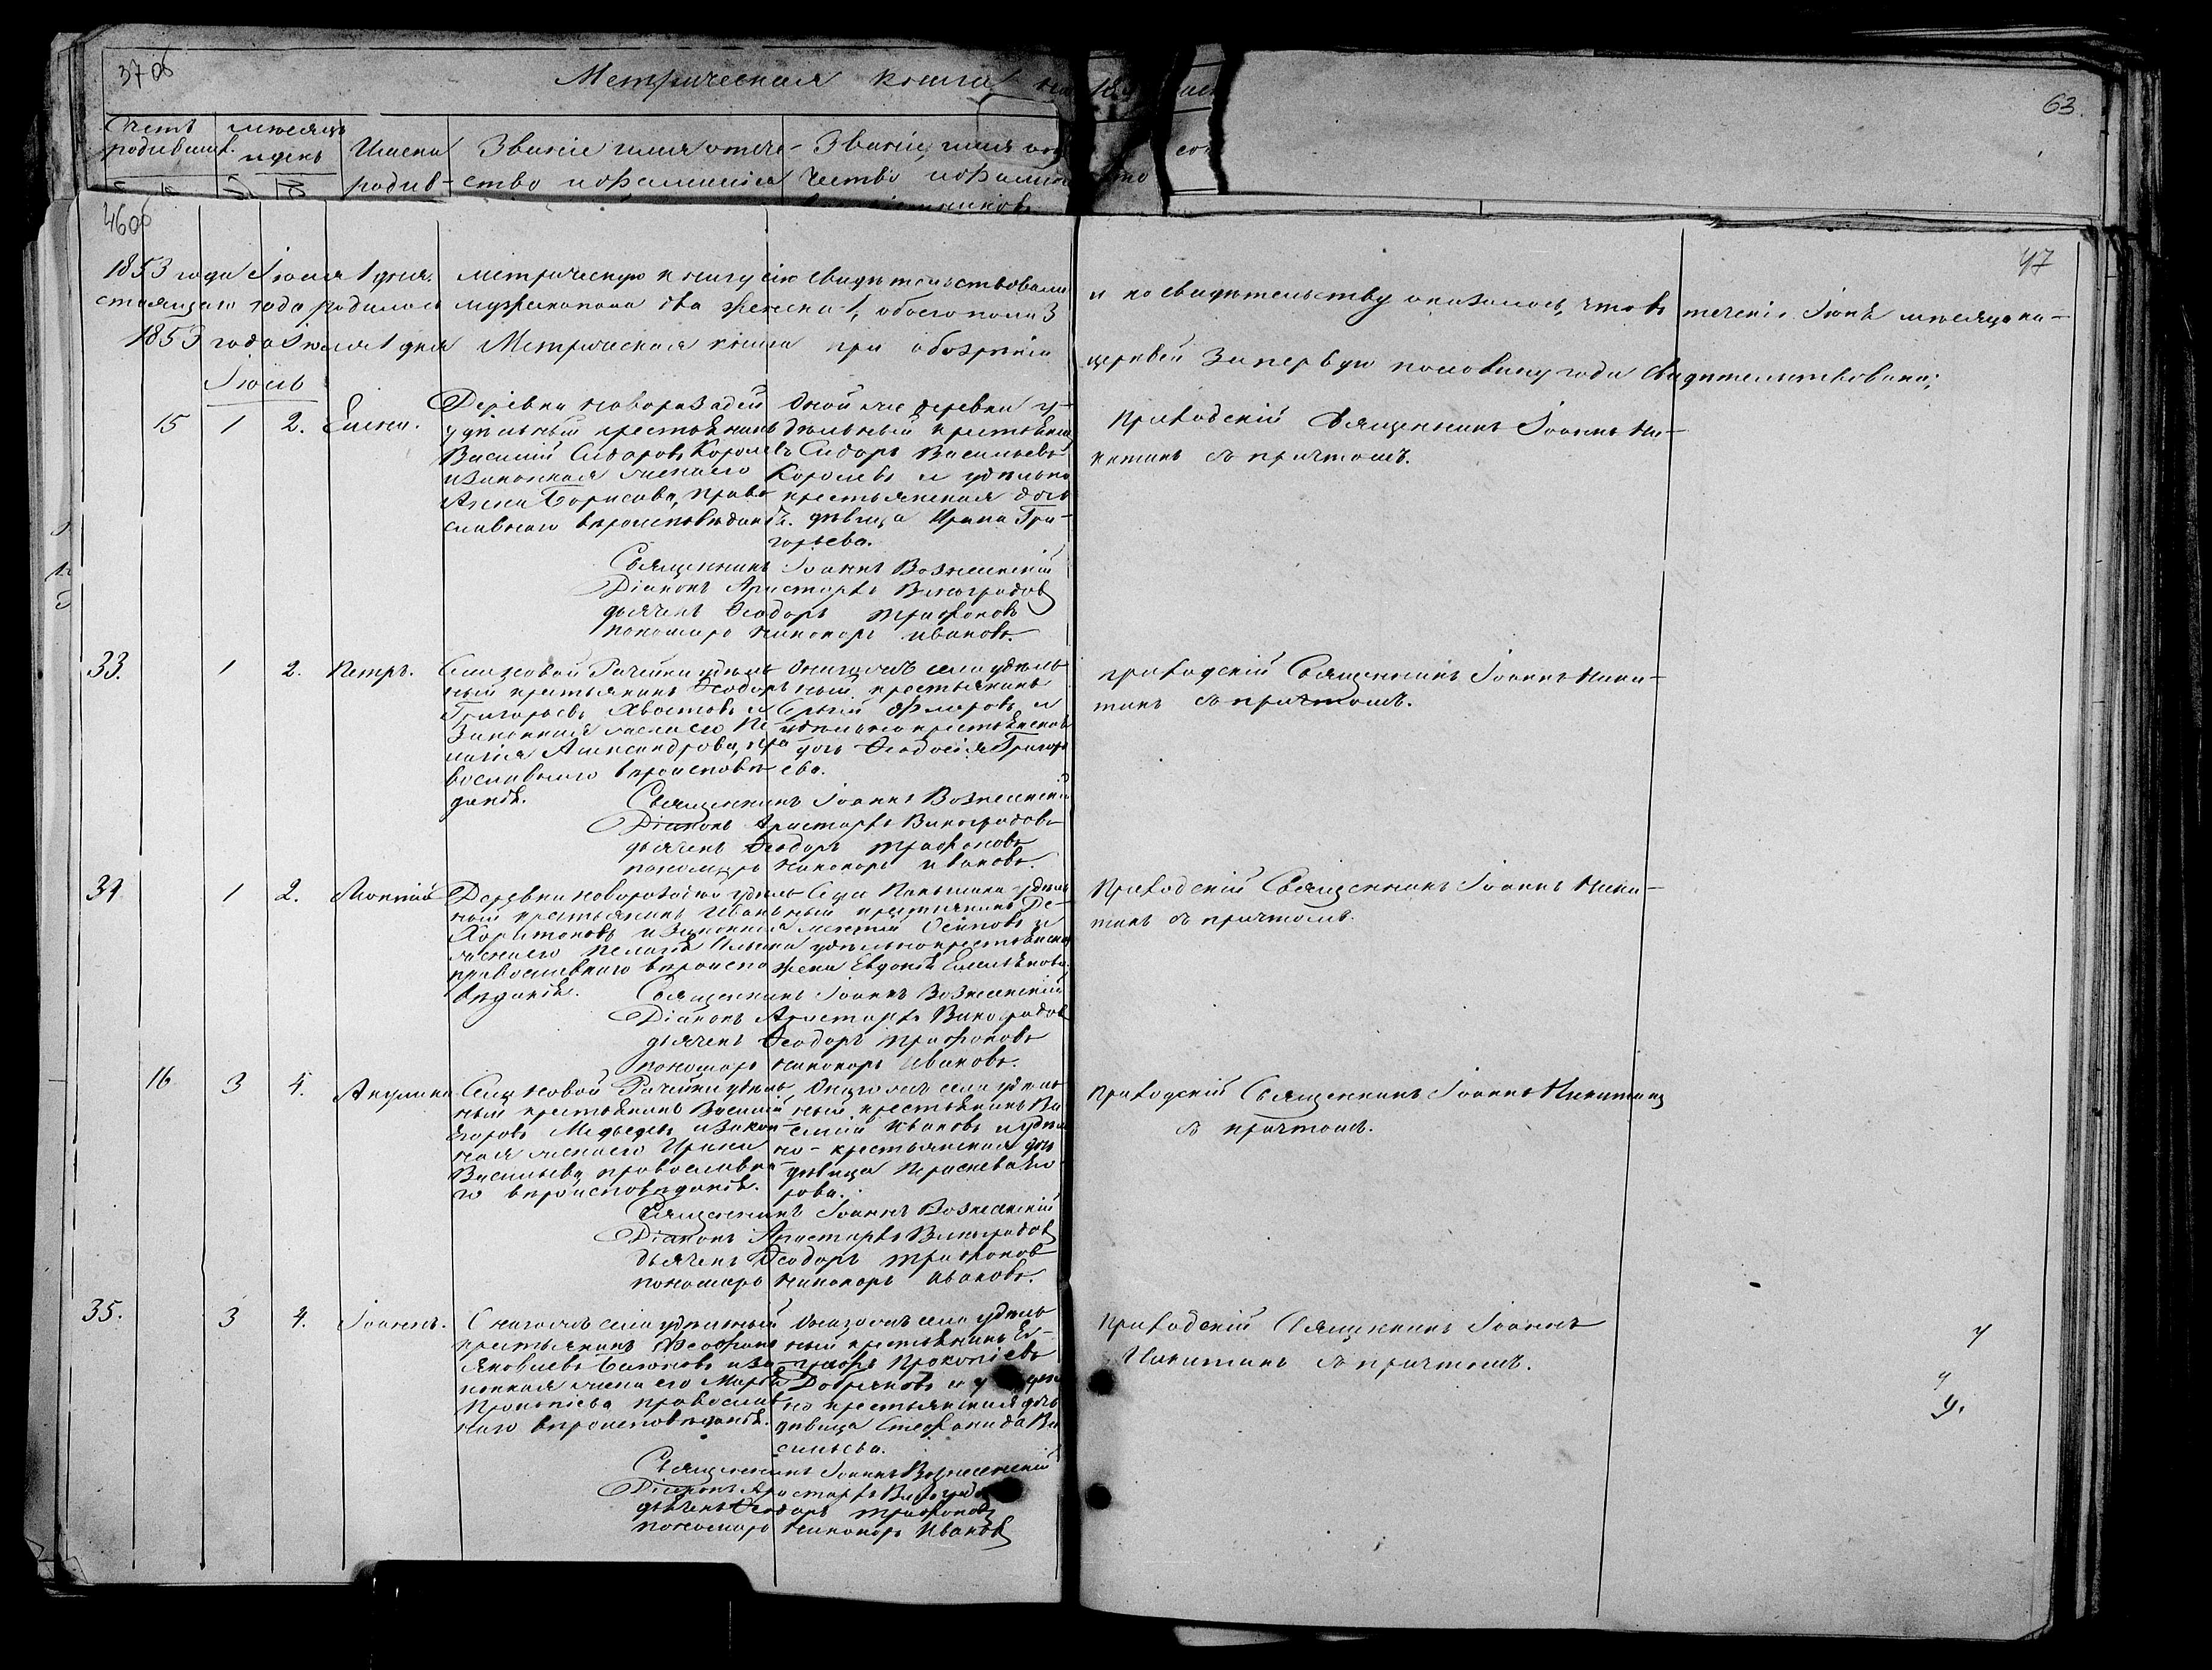 37об
Метрическая книга на
63.
Счетъ родившихъ. мѣсяцъ и день Имена родив-
Званіе имя отече-
ство и фамилія
Званіе, имя
чество и фамилія
46об
47
1853 года Іюля 1 дня. метрическую книгу сію свидѣтельствовали и по свидѣтельству оказалось, что въ теченіе Іюнѣ мѣсяца на-
стоящаго года родилось мужска пола два женска 1, обоего пола 3
1853 года Іюля 1 дня Метрическая книга при обозрѣніи церквей за первую половину года свидѣтельствована;
Іюль
15 1 2. Елена.
Деревни Новоразадей
удѣльный крестьянинъ
Василій Сидоровъ Королевъ
и законная жена его
Анна Борисова, право-
славнаго вѣроисповѣданія.
Оной же деревни у-
дѣльный крестьянинъ
Сидоръ Васильевъ
Королевъ и удѣльно
крестьянская дочь
дѣвица Ирина Гри-
горьева.
Приходскій Священникъ Іоаннъ Ни-
китинъ съ причтомъ.
Священникъ Іоаннъ Вознесенскій
Діаконъ Аристархъ Виноградовъ
дьячекъ Ѳеодоръ Трифоновъ
пономарь Никоноръ Ивановъ.
33. 1 2. Петръ.
Села Новой Рачейки удѣль-
ный крестьянинъ Ѳеодоръ
Григорьевъ Хвостовъ и
Законная жена его Пе-
лагія Александрова, пра-
вославнаго вѣроисповѣ-
данія.
Онагожъ села удѣль-
ный крестьянинъ
и
удѣльно крестьянская
дочь Ѳеодосія Григорь-
ева.
Приходскій Священникъ Іоаннъ Ники-
тинъ съ причтомъ.
Священникъ Іоаннъ Вознесенскій
Діаконъ Аристархъ Виноградовъ
дьячекъ Ѳеодоръ Трифоновъ
пономарь Никоноръ Ивановъ.
34 1 2. Мокій
Деревни удѣль-
ный крестьянинъ Иванъ
Харитоновъ и законная
жена его Пелагія Ильина
православнаго вѣроиспо-
вѣданія.
Села удѣль-
ный крестьянинъ Де-
ментій Осиповъ и
удѣльно крестьянская
жена Евдокія Емельянова.
Приходскій Священникъ Іоаннъ Ники-
тинъ съ причтомъ.
Священникъ Іоаннъ Вознесенскій
Діаконъ Аристархъ Виноградовъ
дьячекъ Ѳеодоръ Трифоновъ
пономарь Никоноръ Ивановъ.
16 3 4. Акулина
Села Новой Рачейки удѣль-
ный крестьянинъ Василій
Егоровъ Медведевъ и закон-
ная жена его Ирина
Васильева православна-
го вѣроисповѣданія.
Онагожъ села удѣль-
ный крестьянинъ Ва-
силій Ивановъ и удѣль-
но-крестьянская дочь
дѣвица Параскева Его-
рова.
Приходскій Священникъ Іоаннъ Никитинъ
съ причтомъ.
Священникъ Іоаннъ Вознесенскій
Діаконъ Аристархъ Виноградовъ
дьячекъ Ѳеодоръ Трифоновъ
пономарь Никоноръ Ивановъ.
35. 3 4. Іоаннъ.
Онагожъ села удѣльный
крестьянинъ Ѳеофанъ
Яковлевъ и за-
конная жена его Марѳа
Прокопіева православ-
наго вѣроисповѣданія.
Онагожъ села удѣль-
ный крестьянинъ Ег-
Прокопіевъ
и
но крестьянская дочь
дѣвица Стефанида Ва-
сильева.
Приходскій Священникъ Іоаннъ
Никитинъ съ причтомъ.
Священникъ Іоаннъ Вознесенскій
Діаконъ Аристархъ
дьячекъ Ѳеодоръ Трифоновъ
пономарь Никоноръ Ивановъ